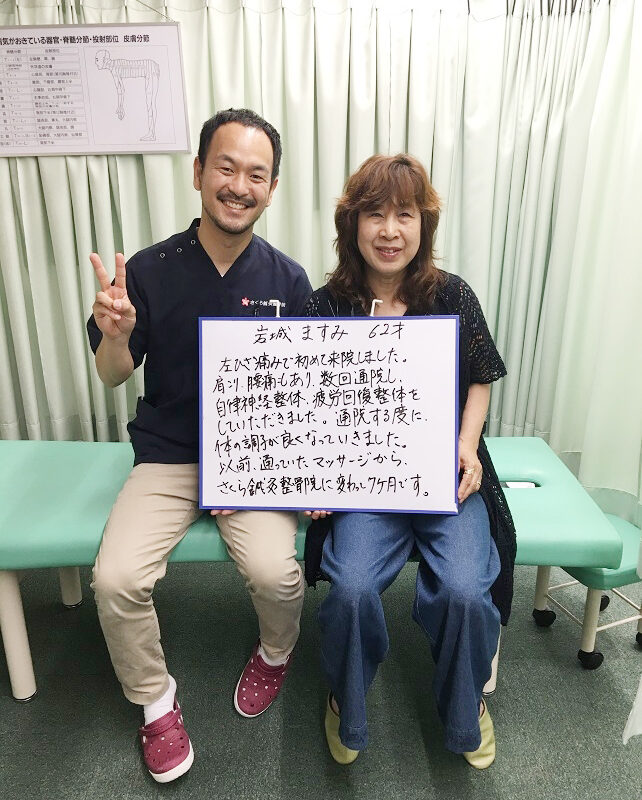 病気がおきている器官・脊髄分節・投射部位 皮膚分節
さくら鍼灸整骨院
岩城 ますみ 62才
左ひざ痛みで初めて来院しました。
肩こり、腰痛もあり、数回通院し、
自律神経整体、疲労回復整体を
していただきました。通院する度に、
体の調子が良くなっていきました。
以前、通っていたマッサージから、
さくら鍼灸整骨院に変わって7ヶ月です。